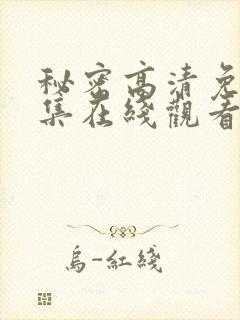 秘密高清免
集在綫觀看
烏-紅綫